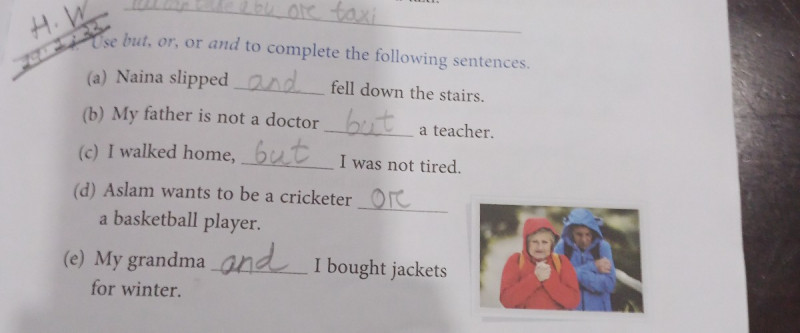 or taxi
H.W
Use but, or, or and to complete the following sentences.
(a) Naina slipped and fell down the stairs.
(b) My father is not a doctor but a teacher.
(c) I walked home, but I was not tired.
(d) Aslam wants to be a cricketer or
a basketball player.
(e) My grandma and I bought jackets
for winter.